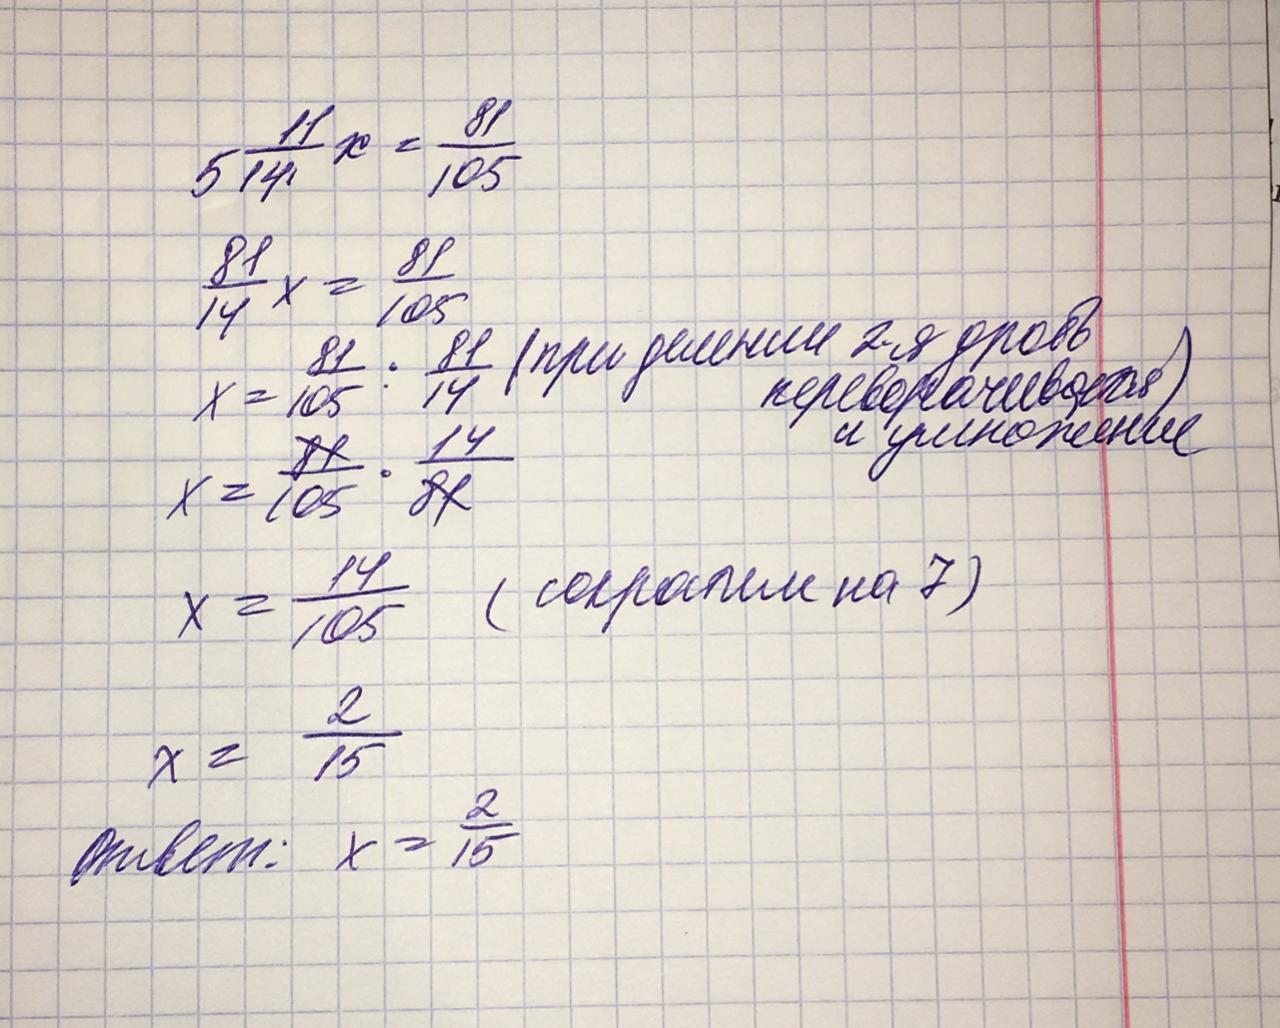 5 11/14 x = 81/105
81/14 x = 81/105
x = 81/105 : 81/14 (при делении 2-я дробь
переворачивается)
и умножение
x = 81/105 · 14/81
x = 14/105 (сократим на 7)
x = 2/15
Ответ: x = 2/15